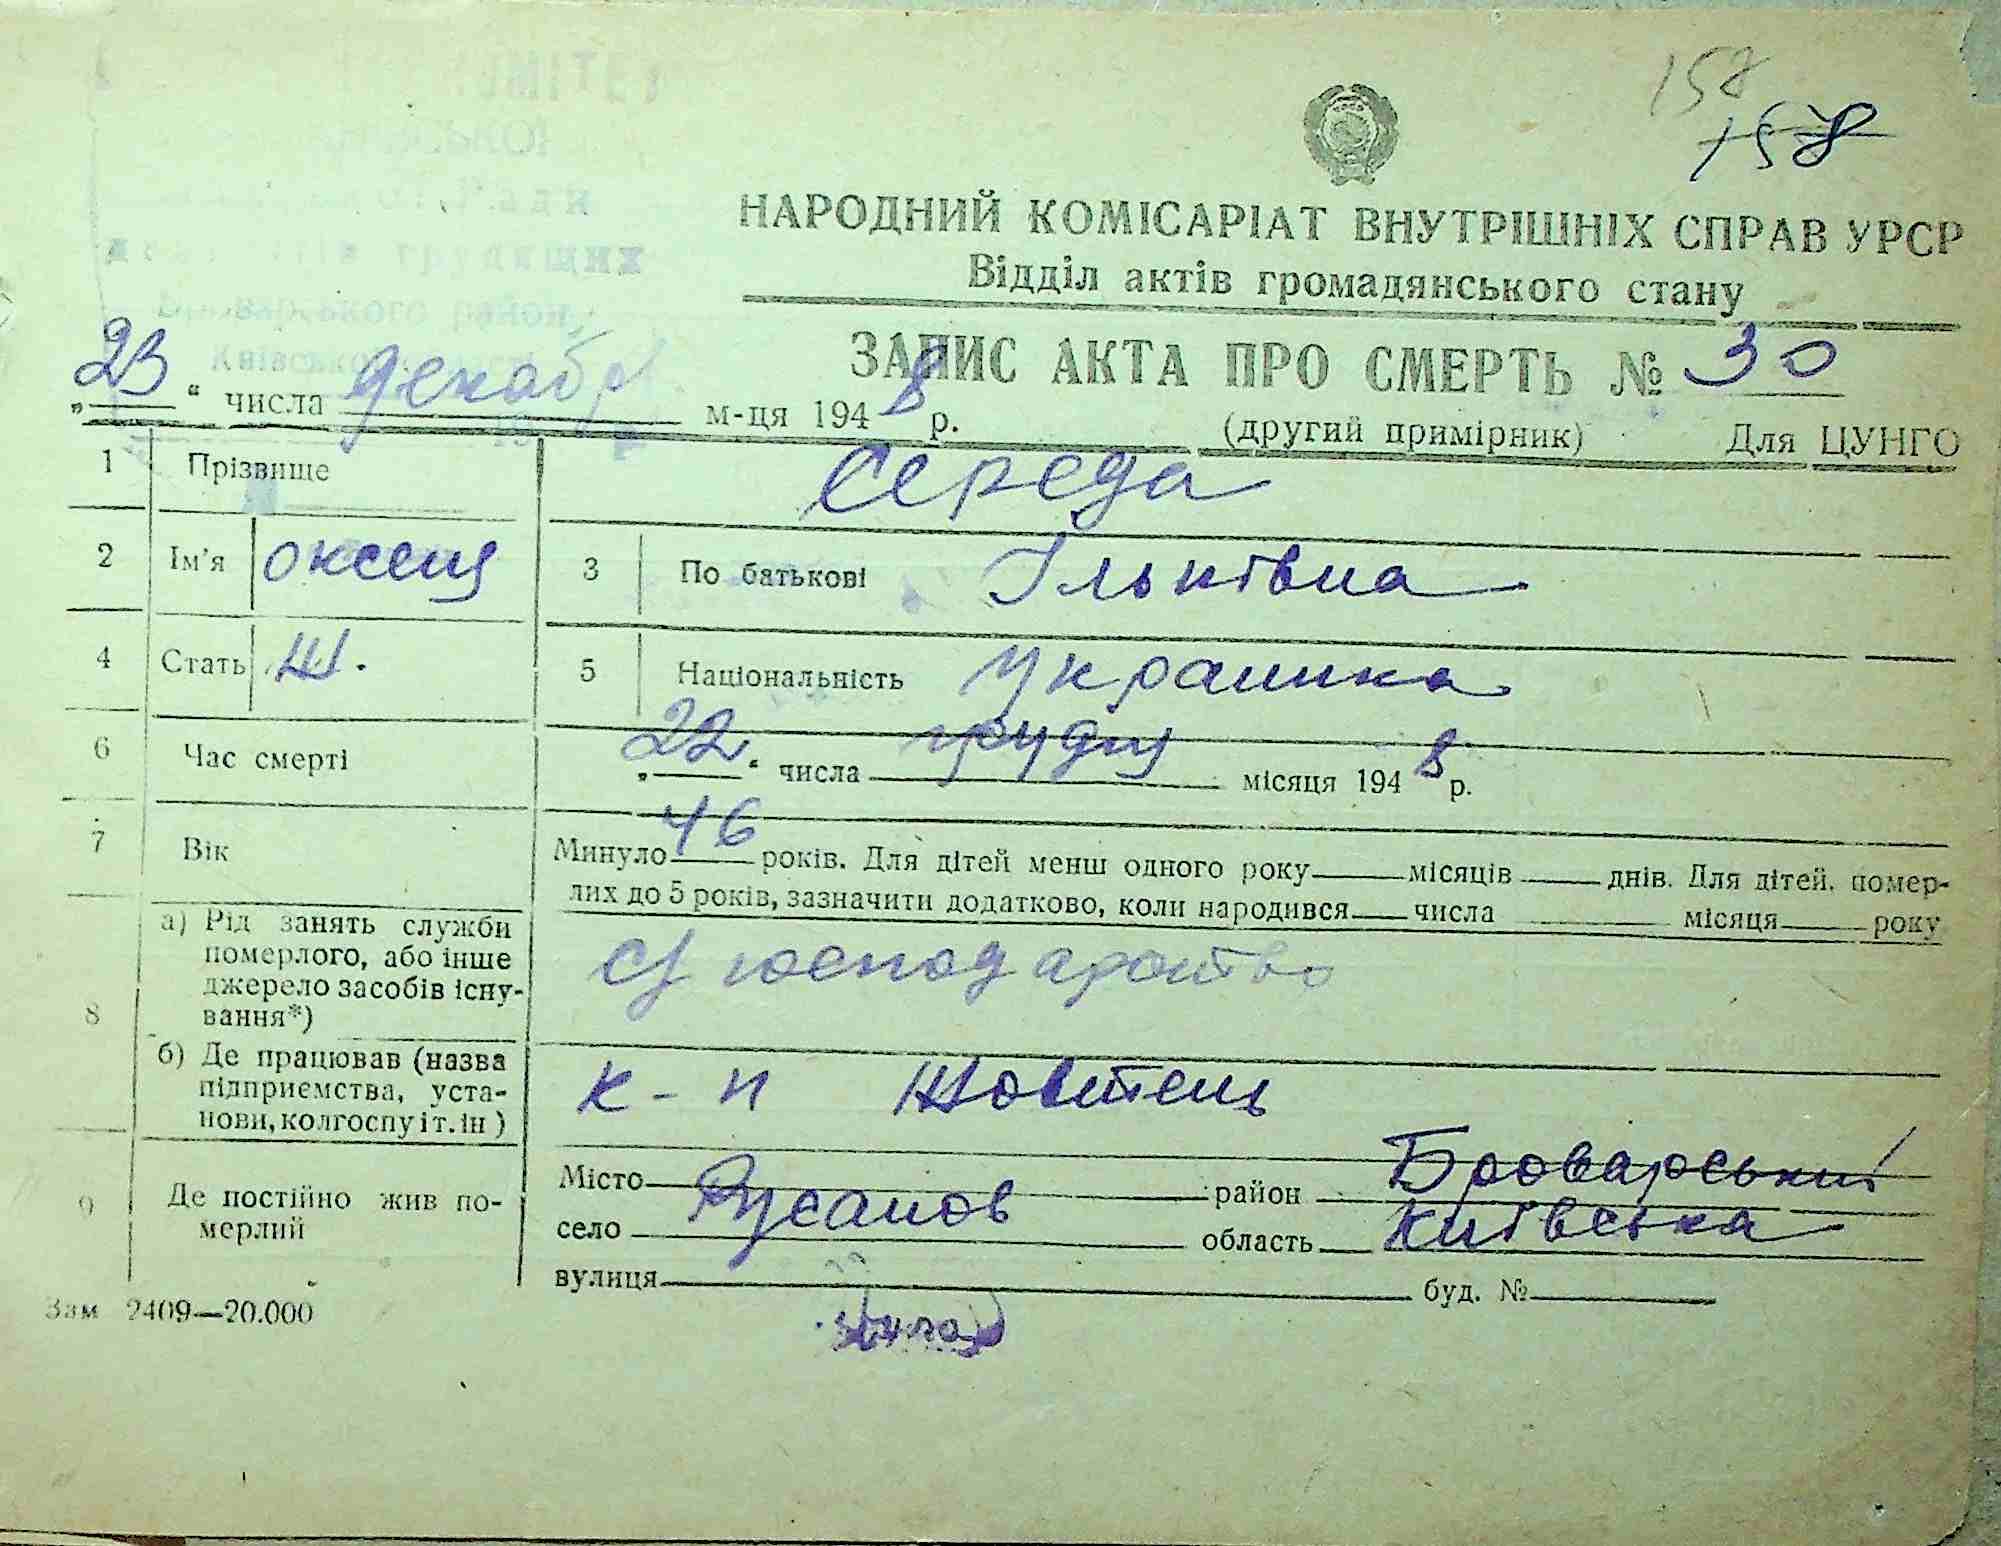 158
158
НАРОДНИЙ КОМІСАРІАТ ВНУТРІШНІХ СПРАВ УРСР
Відділ актів громадянського стану
ЗАПИС АКТА ПРО СМЕРТЬ № 30
„23“ числа декабр м-ця 1948 р. (другий примірник) Для ЦУНГО
1 Прізвище Середа
2 Ім'я Оксена 3 По батькові Ільківна
4 Стать Ж. 5 Національність Украинка
6 Час смерті „22“ числа грудня місяця 1948 р.
7 Вік Минуло 46 років. Для дітей менш одного року місяців днів. Для дітей, помер-
лих до 5 років, зазначити додатково, коли народився числа місяця року
8 а) Рід занять служби
померлого, або інше
джерело засобів існу-
вання*)
с господарство
б) Де працював (назва
підприємства, уста-
нови, колгоспу і т. ін)
к-п Жовтень
9 Де постійно жив по-
мерлий
Місто район Броварський
село Русанов область Київська
вулиця буд. №
Зам 2409—20.000